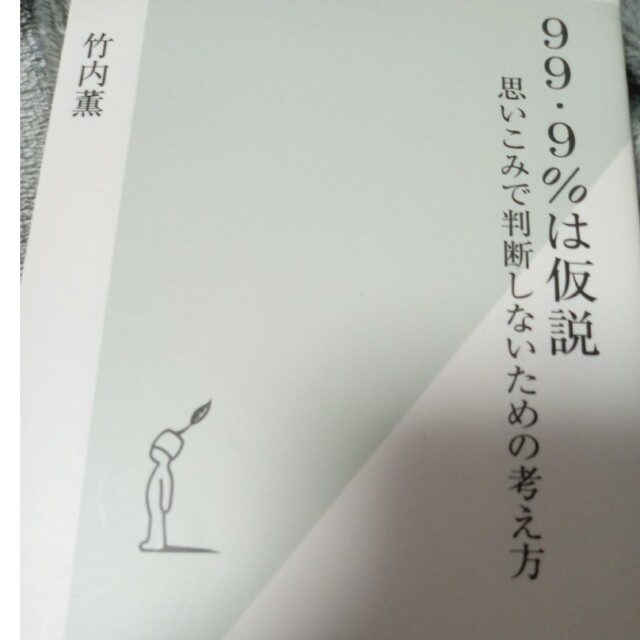 99・9%は仮説
思いこみで判断しないための考え方
竹内薫